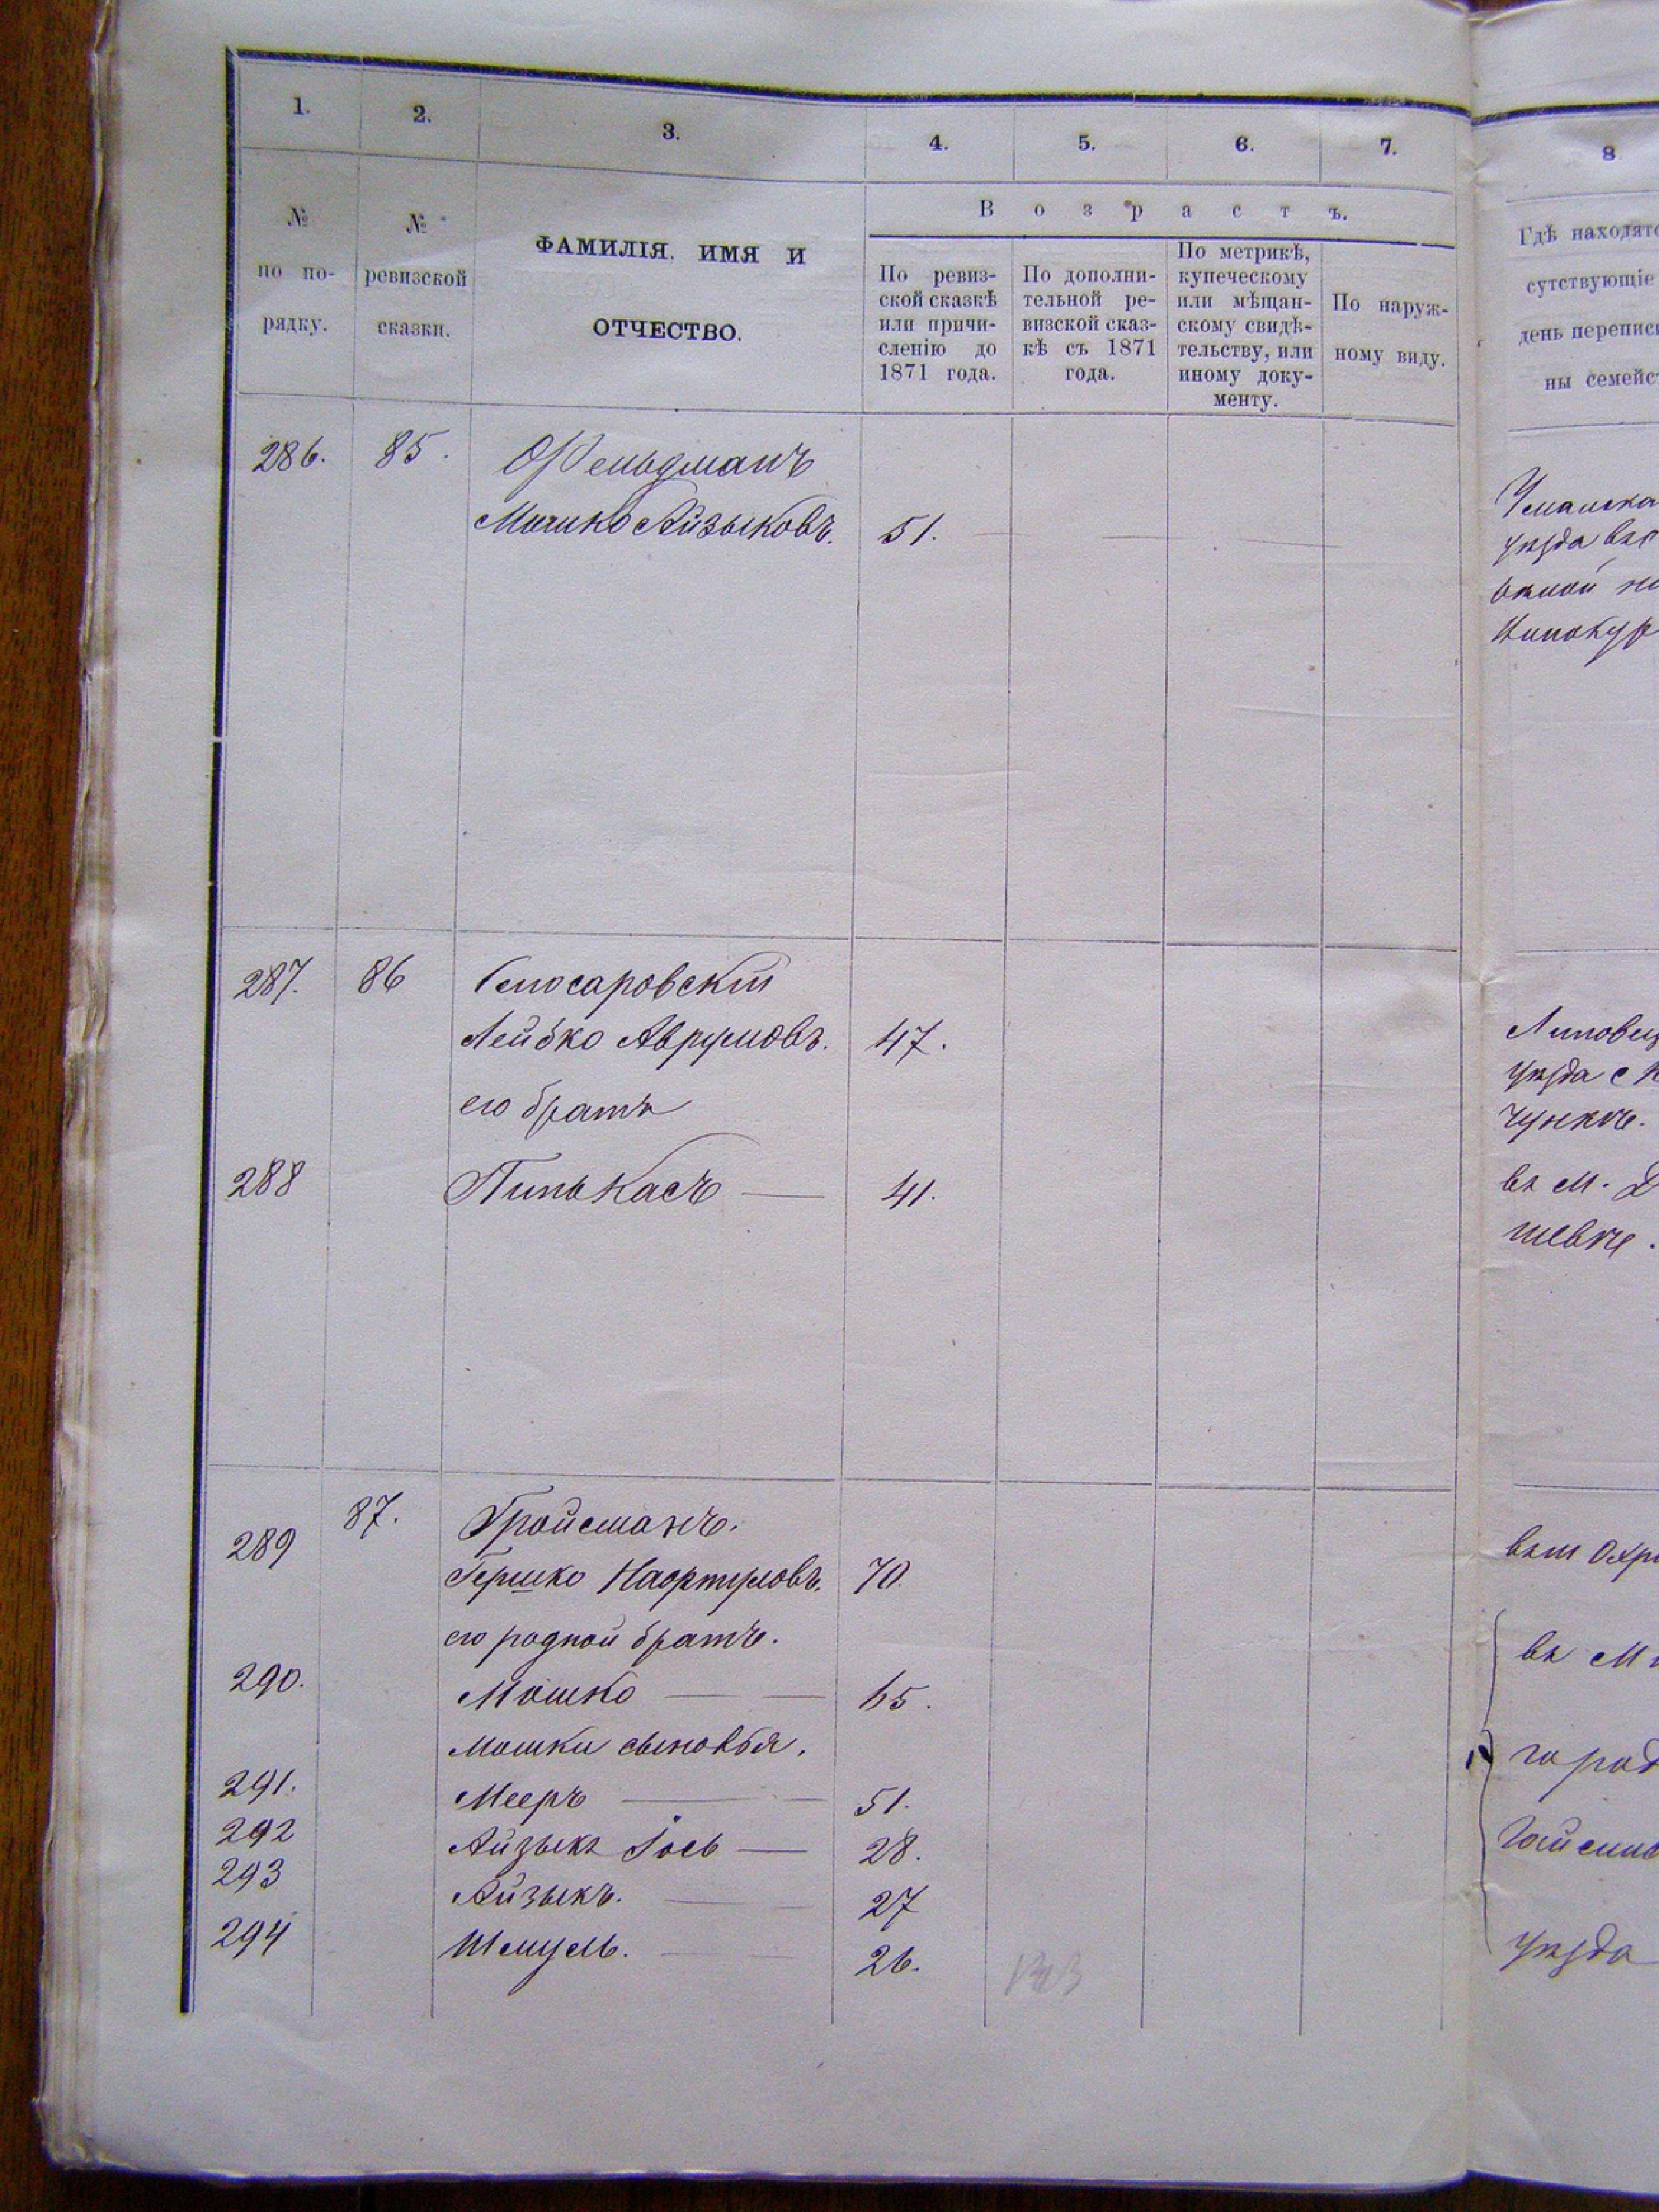 1.
2.
3.
4.
5.
6.
7.
8
№
по по-
рядку.
№
ревизской
сказки.
ФАМИЛІЯ, ИМЯ И
ОТЧЕСТВО.
Возрастъ.
По ревиз-
ской сказкѣ
или причи-
сленію до
1871 года.
По дополни-
тельной ре-
визской сказ-
кѣ съ 1871
года.
По метрикѣ,
купеческому
или мѣщан-
скому свидѣ-
тельству, или
иному доку-
менту.
По наруж-
ному виду.
Гдѣ находятс
сутствующіе
день переписи
ны семейст
286. 85. Фельдманъ
Мошко Айзыковъ. 51.
уѣзда
287. 86
Лейбко Аврумовъ. 47.
его братъ
288 Пинькасъ — 41.
Липовец
уѣзда с
въ м.
87. Гройсманъ.
289 Гершко 70.
его родной братъ.
290. Мошко — — 65.
Мошки сыновья.
291. Мееръ — — 51.
292 Айзыкъ Іось — 28.
293 Айзыкъ. — — 27
294 Шмуль. — — 26.
въ м
город
уѣзда